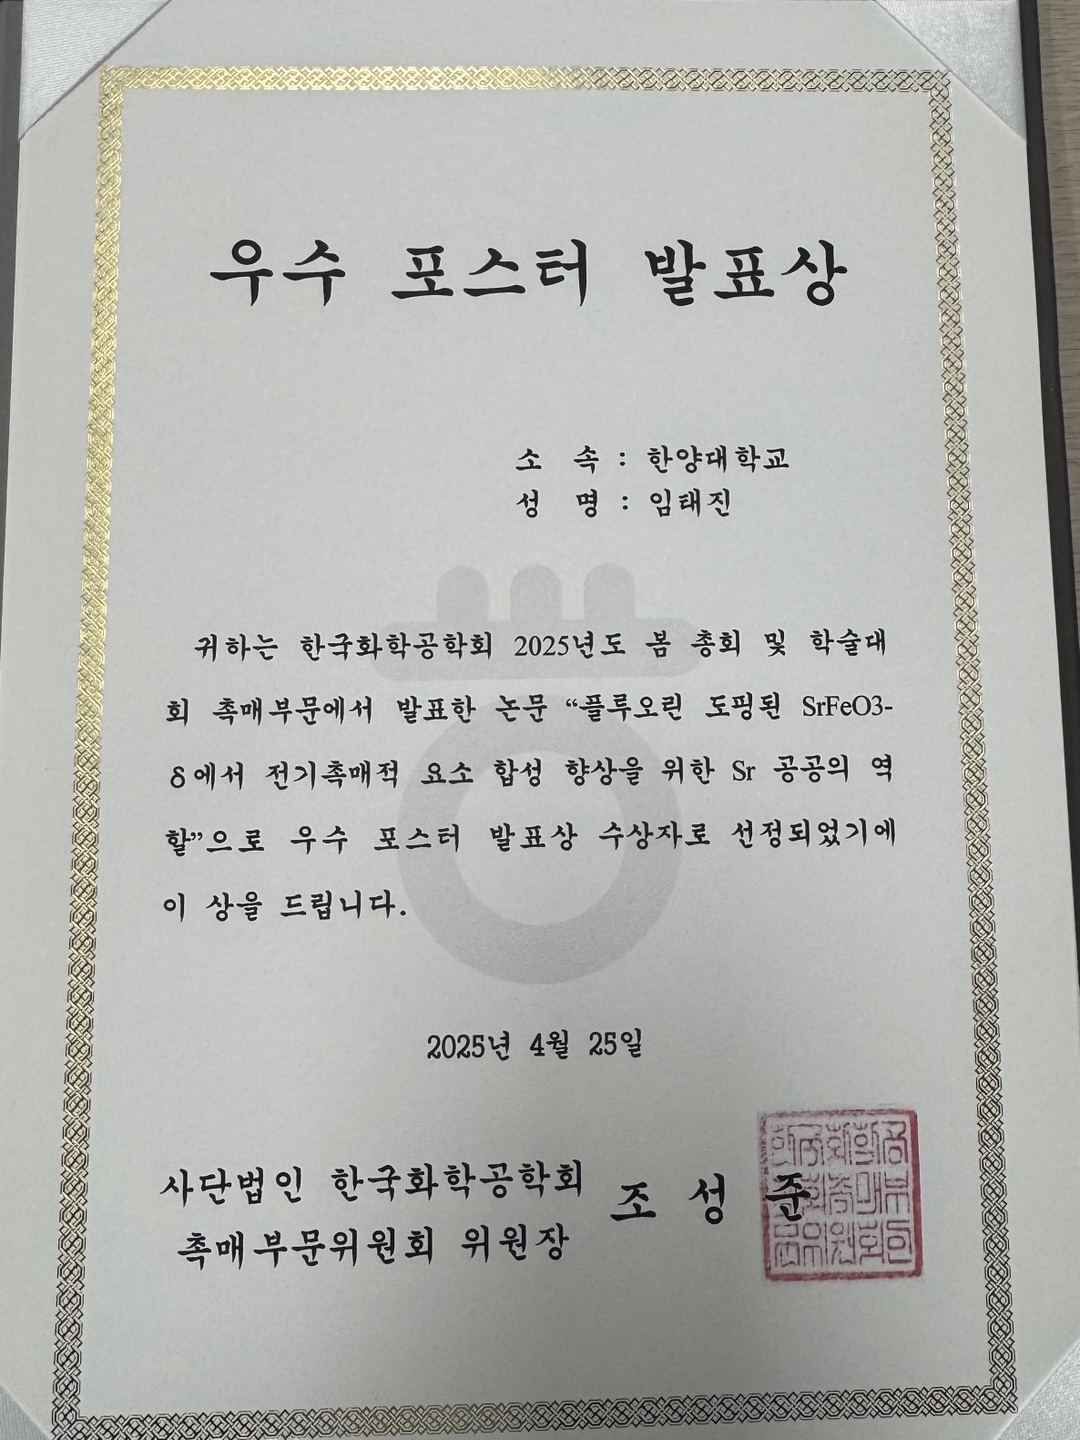 우수 포스터 발표상
소 속 : 한양대학교
성 명 : 임태진
귀하는 한국화학공학회 2025년도 봄 총회 및 학술대
회 촉매부문에서 발표한 논문 “플루오린 도핑된 SrFeO3-
δ에서 전기촉매적 요소 합성 향상을 위한 Sr 공공의 역
할”으로 우수 포스터 발표상 수상자로 선정되었기에
이 상을 드립니다.
2025년 4월 25일
사단법인 한국화학공학회
촉매부문위원회 위원장
조 성 준